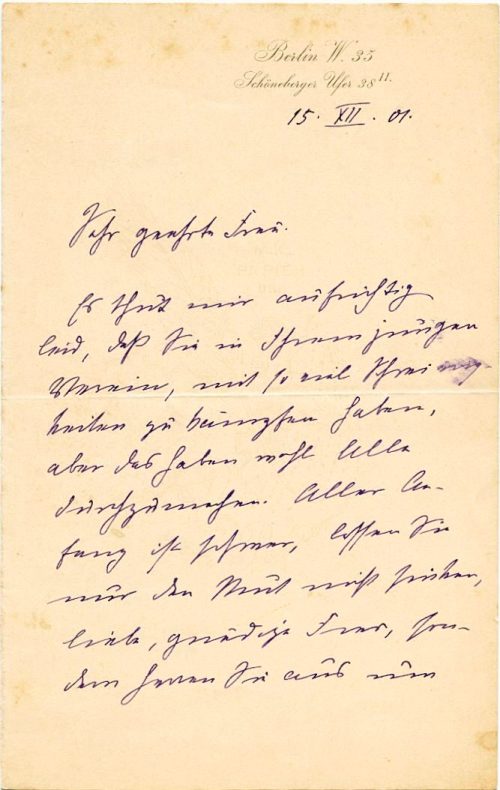 Berlin W. 35
Schöneberger Ufer 38 II.
15. XII. 01.
Sehr geehrte Frau.
Es thut mir aufrichtig
leid, daß Sie in Ihrem jungen
Verein, mit so viel Schwierig
keiten zu kämpfen haben,
aber das haben wohl Alle
durchzumachen. Aller An-
fang ist schwer, lassen Sie
nur den Mut nicht sinken,
liebe, gnädige Frau, son-
dern harren Sie aus um